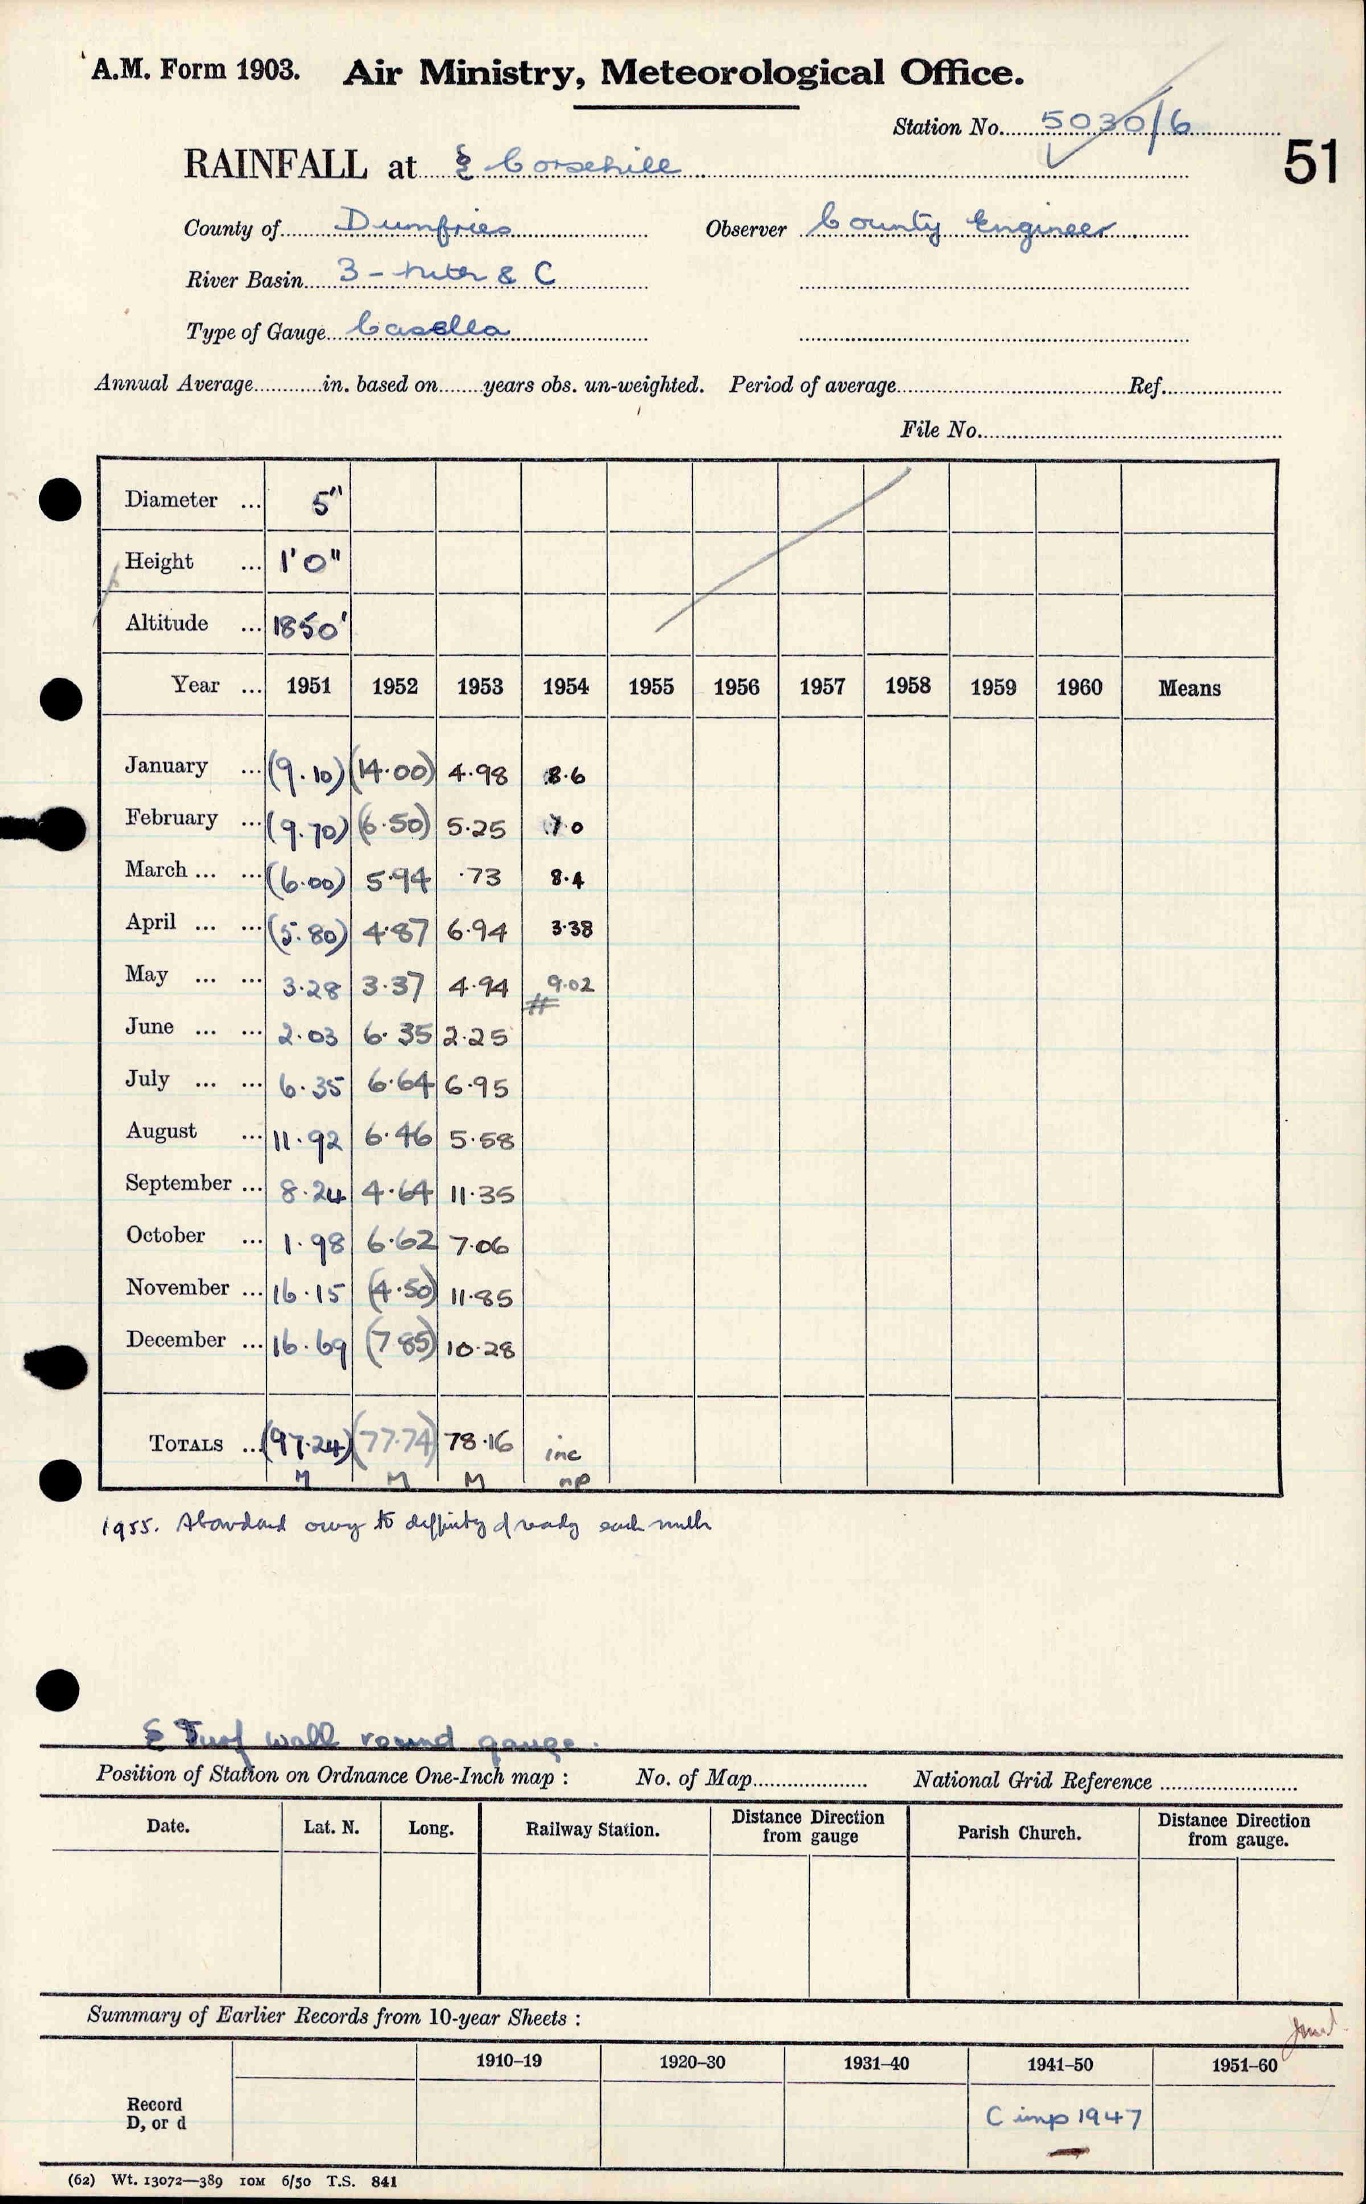 A.M. Form 1903. Air Ministry, Meteorological Office.
Station No. 5030/6
51
RAINFALL at Corsehill
County of Dumfries Observer County Engineer
River Basin 3 - Nith & C
Type of Gauge Casella
Annual Average in. based on years obs. un-weighted. Period of average Ref.
File No.
Diameter ... 5"
Height ... 1' 0"
Altitude ... 1850'
Year ... 1951 1952 1953 1954 1955 1956 1957 1958 1959 1960 Means
January ... (9.10) (14.00) 4.98 8.6
February ... (9.70) (6.50) 5.25 7.0
March ... ... (6.00) 5.94 .73 8.4
April ... ... (5.80) 4.87 6.94 3.38
May ... ... 3.28 3.37 4.94 9.02
#
June ... ... 2.03 6.35 2.25
July ... ... 6.35 6.64 6.95
August ... 11.92 6.46 5.58
September ... 8.24 4.64 11.35
October ... 1.98 6.62 7.06
November ... 16.15 (4.50) 11.85
December ... 16.69 (7.85) 10.28
TOTALS ... (97.24) (77.74) 78.16 inc
M M M mp
1955. each
Turf wall round gauge.
Position of Station on Ordnance One-Inch map : No. of Map National Grid Reference
Date. Lat. N. Long. Railway Station. Distance Direction from gauge Parish Church. Distance Direction from gauge.
Summary of Earlier Records from 10-year Sheets :
1910–19 1920–30 1931–40 1941–50 1951–60
Record
D, or d
C imp 1947
(62) Wt. 13072—389 10M 6/50 T.S. 841